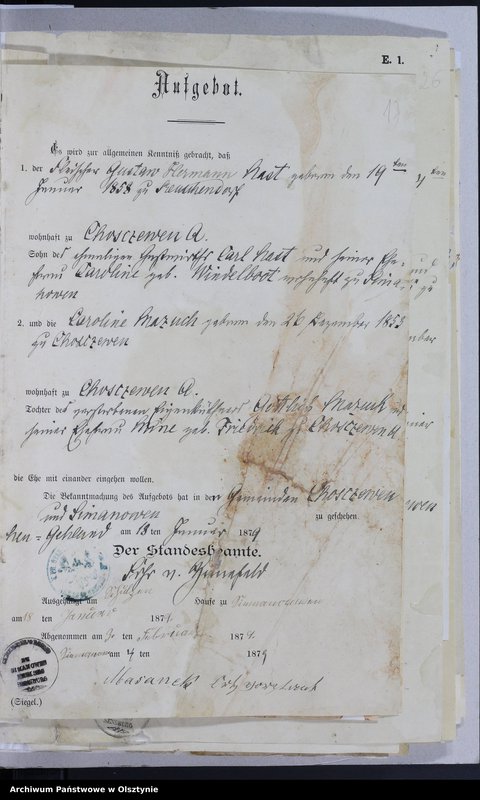 E. 1.
26
13
Aufgebot.
Es wird zur allgemeinen Kenntniß gebracht, daß
1. der Fleischer Gustav Hermann Nast geboren den 19 ten
Januar 1858 zu Reuschendorf
wohnhaft zu Chosczewen A.
Sohn des ehemaligen Gastwirths Carl Nast und seiner Ehe-
frau Caroline geb. Windelbott wohnhaft zu Sima-
nowen
2. und die Caroline Mazuch geboren den 26 Dezember 1853
zu Chosczewen
wohnhaft zu Chosczewen A.
Tochter des verstorbenen Eigenkäthners Gottlieb Mazuch und
seiner Ehefrau Mine geb. Friedrich zu Chosczewen A
die Ehe mit einander eingehen wollen.
Die Bekanntmachung des Aufgebots hat in den Gemeinden Chosczewen
und Simanowen zu geschehen.
am 13 ten Januar 1879
Der Standesbeamte.
Frhr v.
Ausgehängt am Schulzen Hause zu Simanowen
am 18 ten Januar 1879.
Abgenommen am ten Februar 1879.
Simanowen am 4 ten 1879
Masanek Ortsvorstand
(Siegel.)
Archiwum Państwowe w Olsztynie